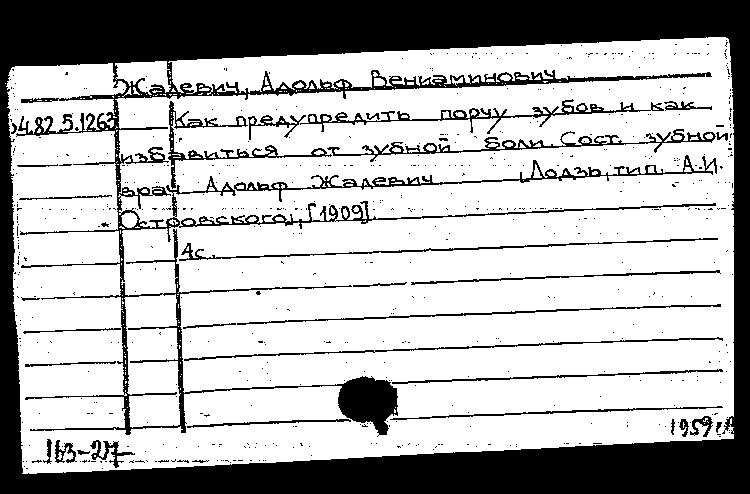 Жадевич, Адольф Вениаминович.
34.82.5.1263 Как предупредить порчу зубов и как
избавиться от зубной боли. Сост. зубной
врач Адольф Жадевич [Лодзь, тип. А.И.
Островского], [1909].
4с.
163-27-
1959